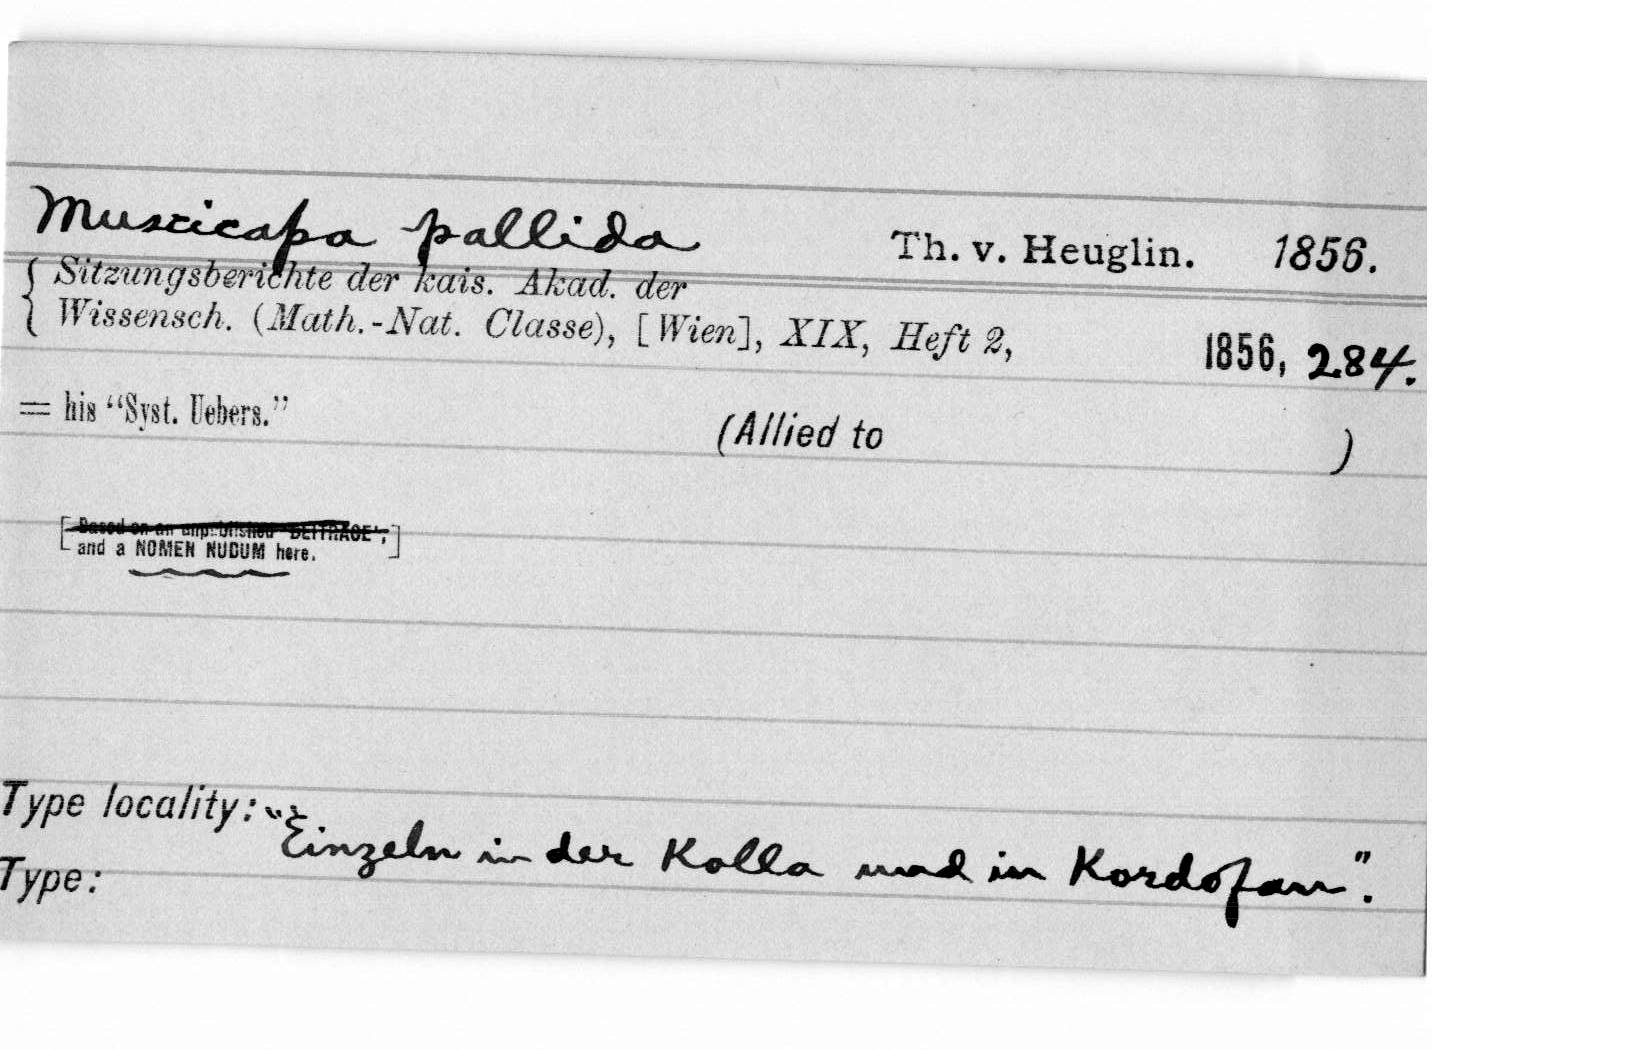 Muscicapa pallida Th. v. Heuglin. 1856.
{ Sitzungsberichte der kais. Akad. der
Wissensch. (Math.-Nat. Classe), [Wien], XIX, Heft 2, 1856, 284.
= his "Syst. Uebers." (Allied to )
[Based on an unpublished "BEITRÄGE",]
and a NOMEN NUDUM here.
Type locality: "Einzeln in der Kolla und in Kordofan".
Type: